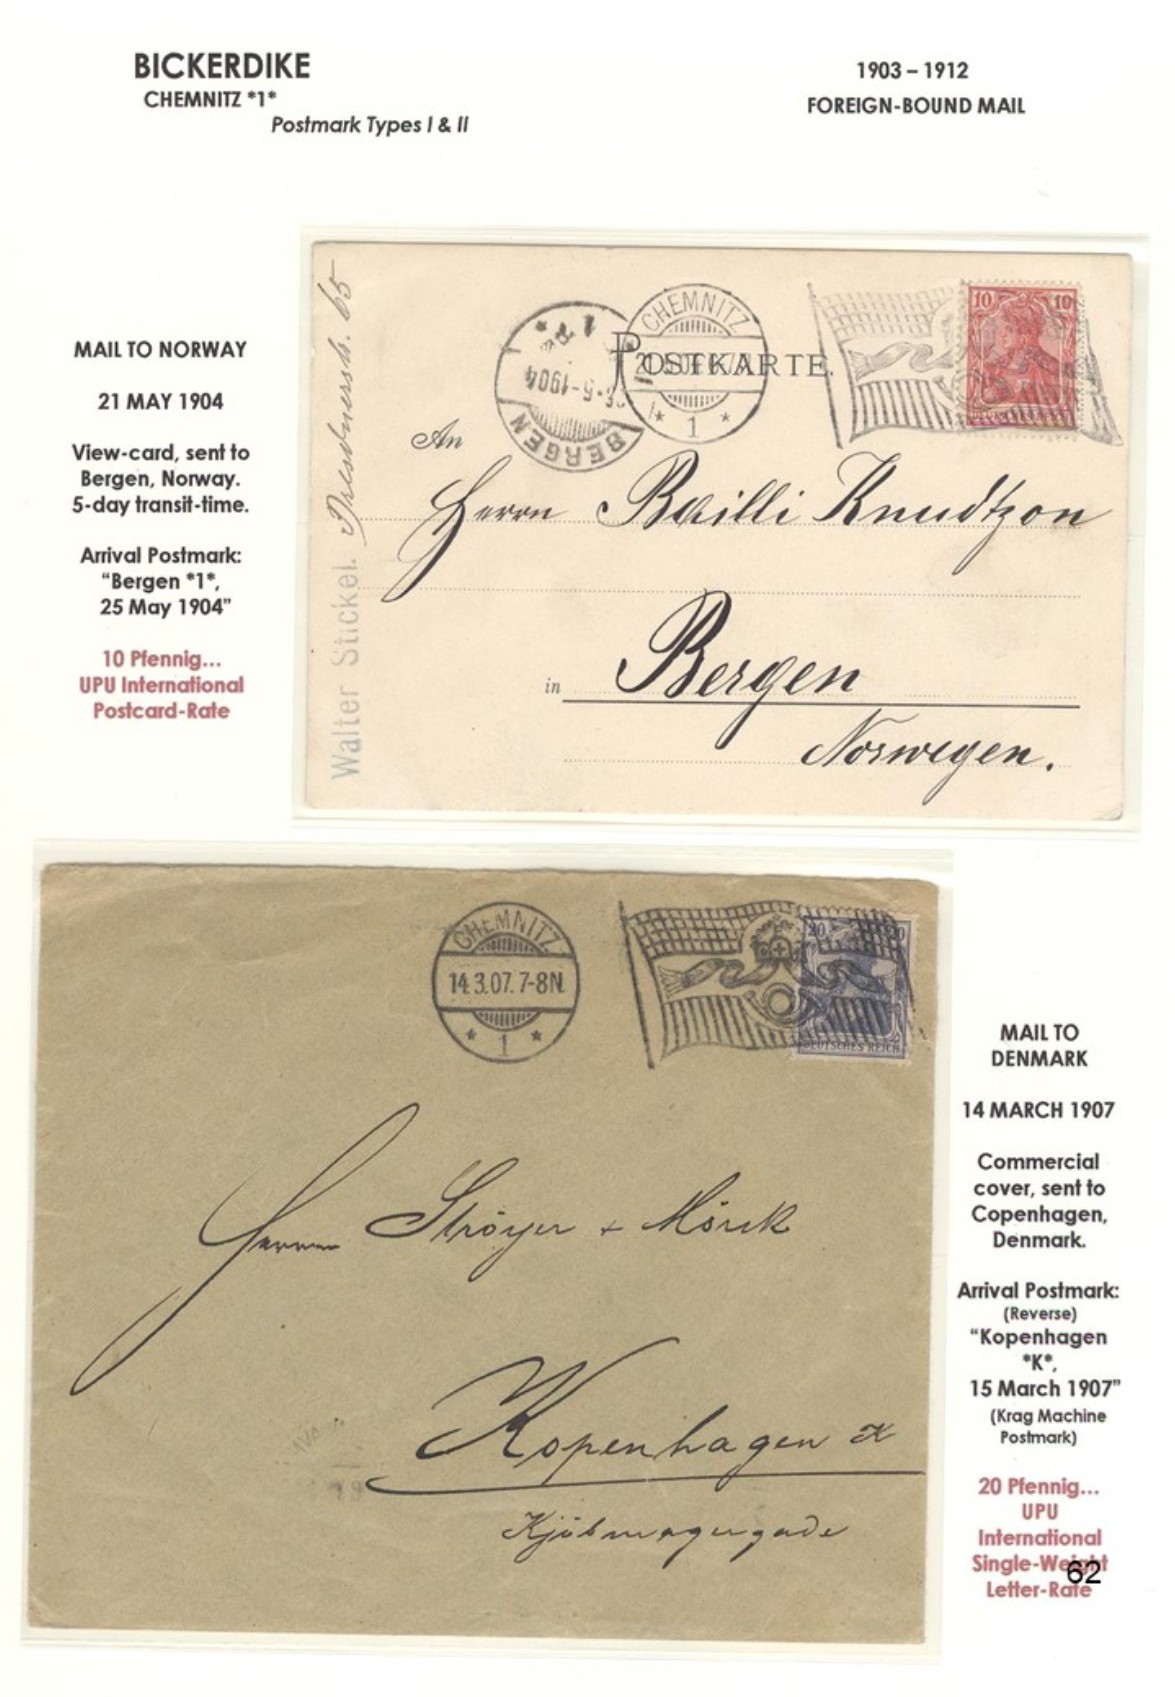 BICKERDIKE
CHEMNITZ *1*
Postmark Types I & II
1903 – 1912
FOREIGN-BOUND MAIL
MAIL TO NORWAY
21 MAY 1904
View-card, sent to
Bergen, Norway.
5-day transit-time.
Arrival Postmark:
“Bergen *1*,
25 May 1904”
10 Pfennig...
UPU International
Postcard-Rate
Walter Stickel. Dresdnerstr. 65
BERGEN
5-1904
1
CHEMNITZ
* 1 *
10 10
POSTKARTE.
An
Herrn Bailli Knudtzon
in Bergen
Norwegen.
CHEMNITZ
14.3.07. 7-8N.
* 1 *
20 20
DEUTSCHES REICH
Herren Ströyer + Mörck
Kopenhagen K
Kjöbmagergade
MAIL TO
DENMARK
14 MARCH 1907
Commercial
cover, sent to
Copenhagen,
Denmark.
Arrival Postmark:
(Reverse)
“Kopenhagen
*K*,
15 March 1907”
(Krag Machine
Postmark)
20 Pfennig...
UPU
International
Single-Weight
Letter-Rate
62